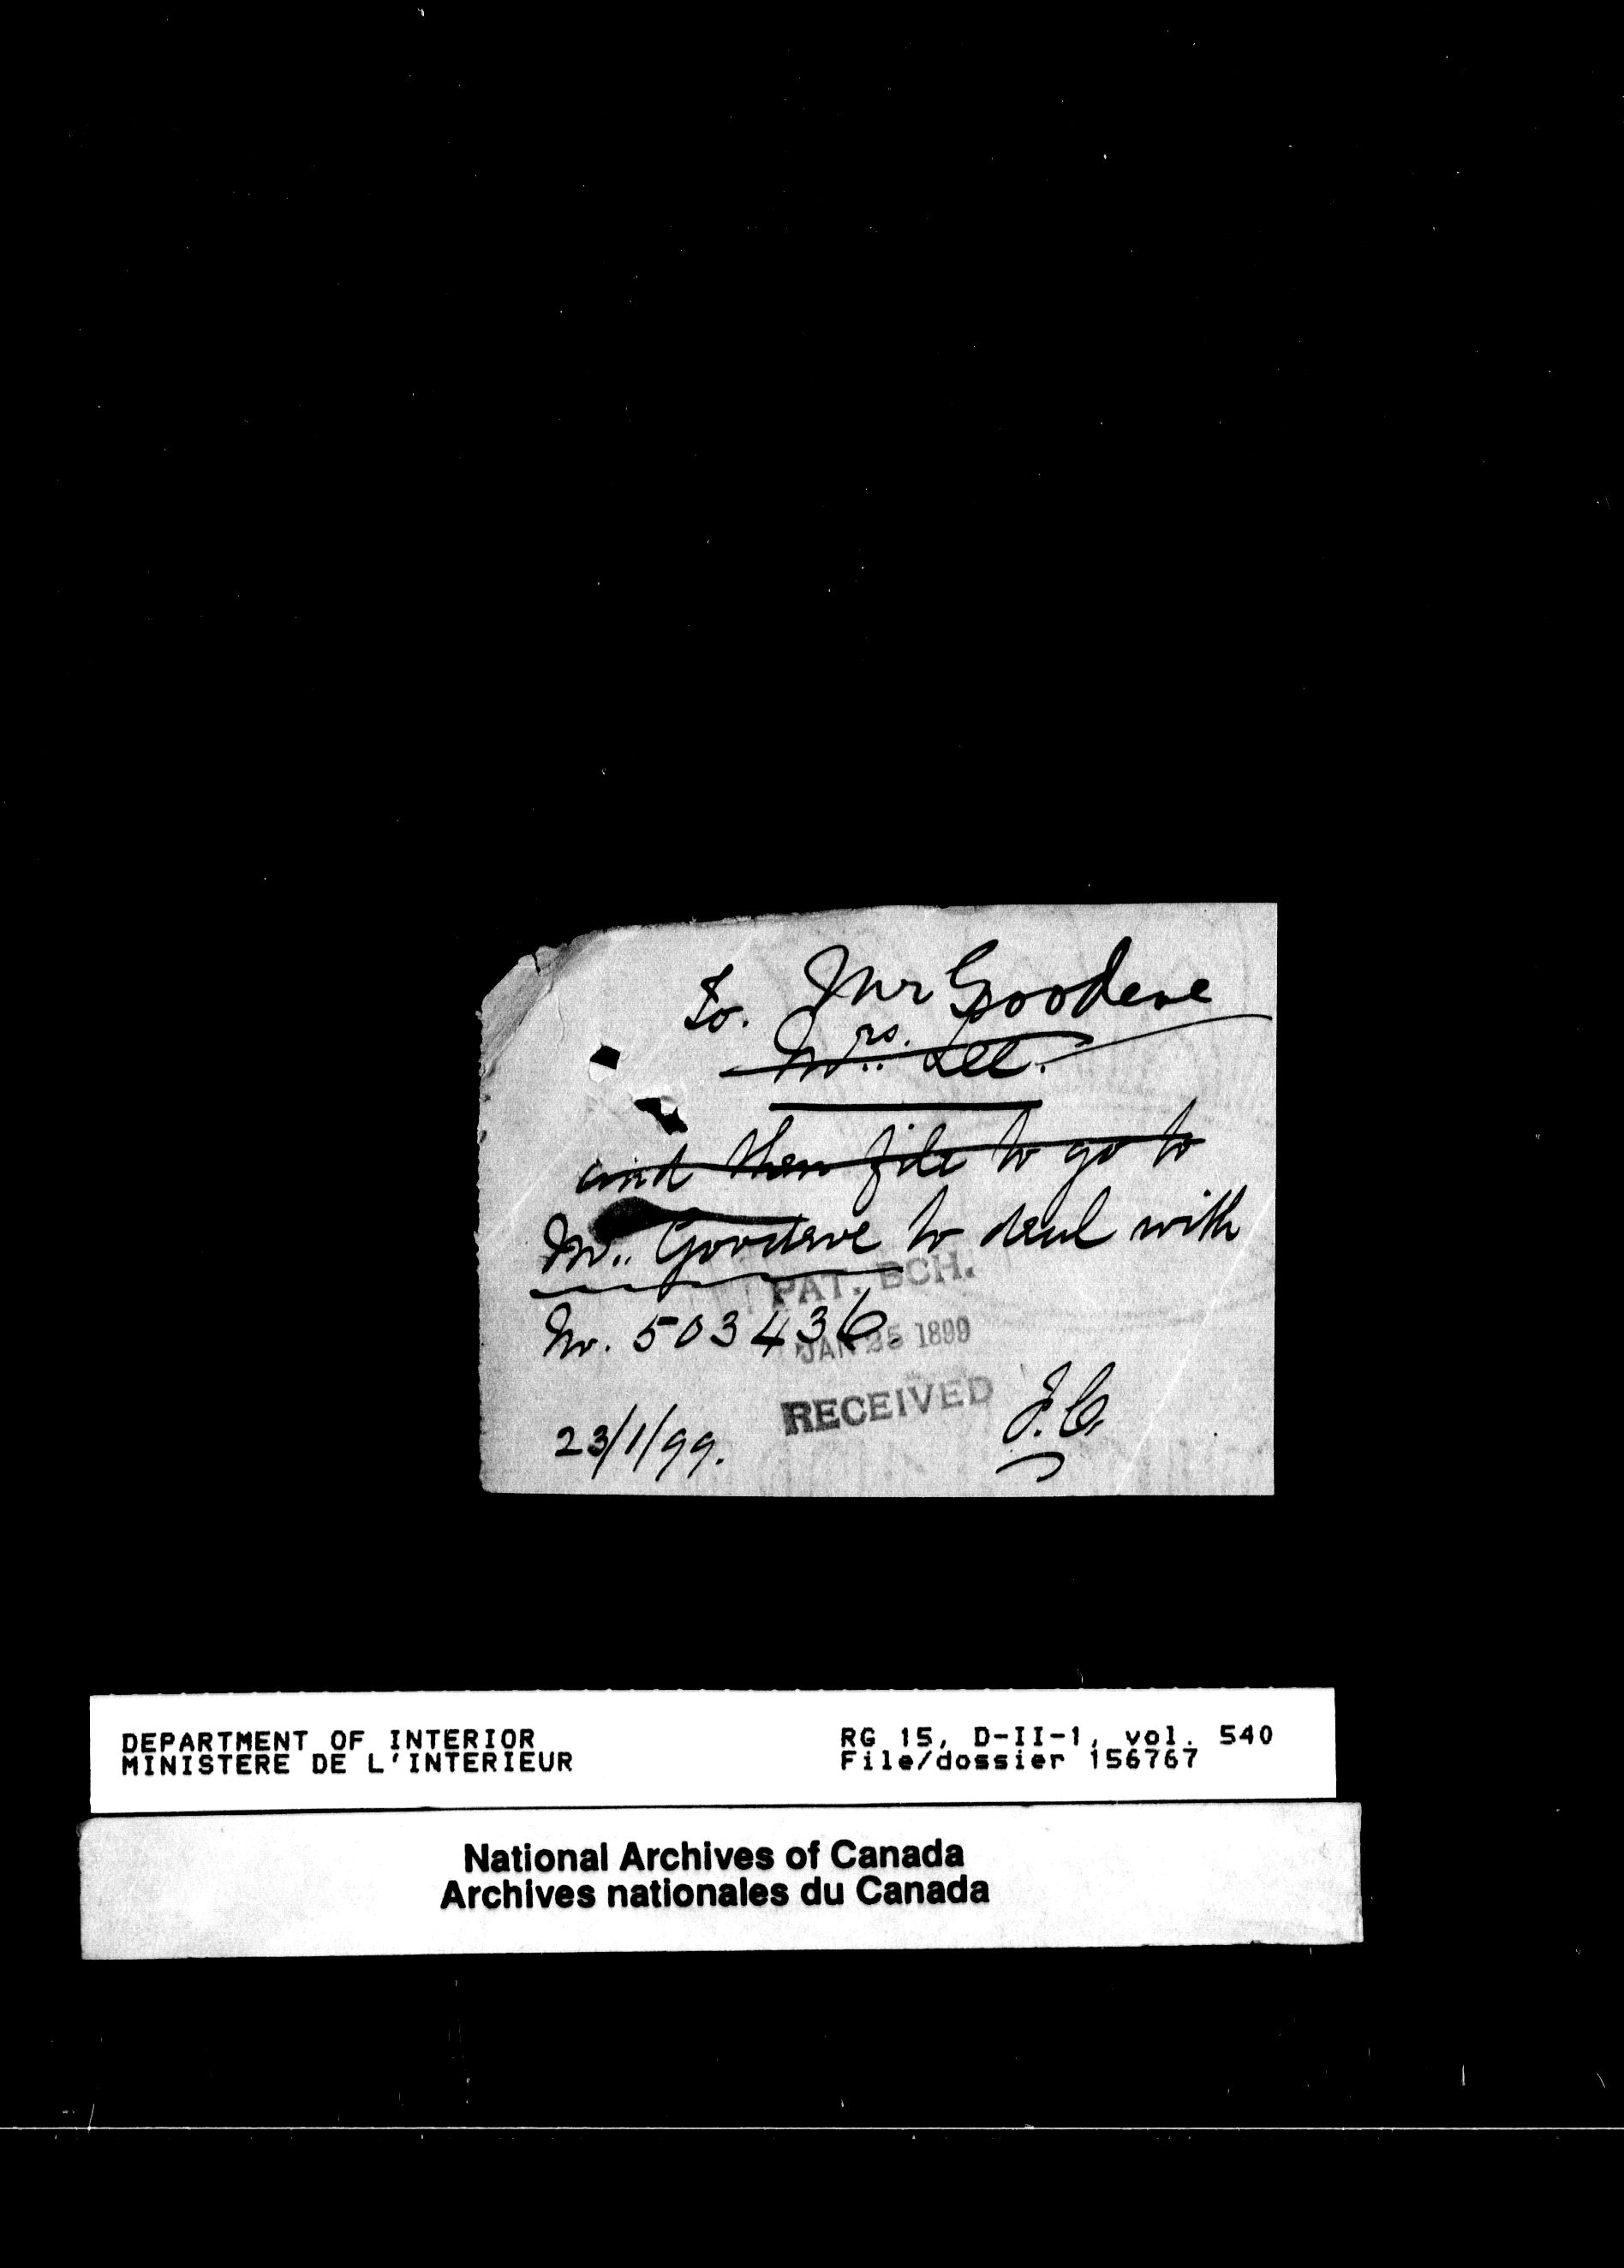 To. Mr Goodeve
Mrs. Lee.
and then file to go to
Mr. Goodeve to deal with
PAT. BCH.
No. 503436.
JAN 25 1899
RECEIVED
J.C.
23/1/99.
DEPARTMENT OF INTERIOR
MINISTERE DE L'INTERIEUR
RG 15, D-II-1, vol. 540
File/dossier 156767
National Archives of Canada
Archives nationales du Canada